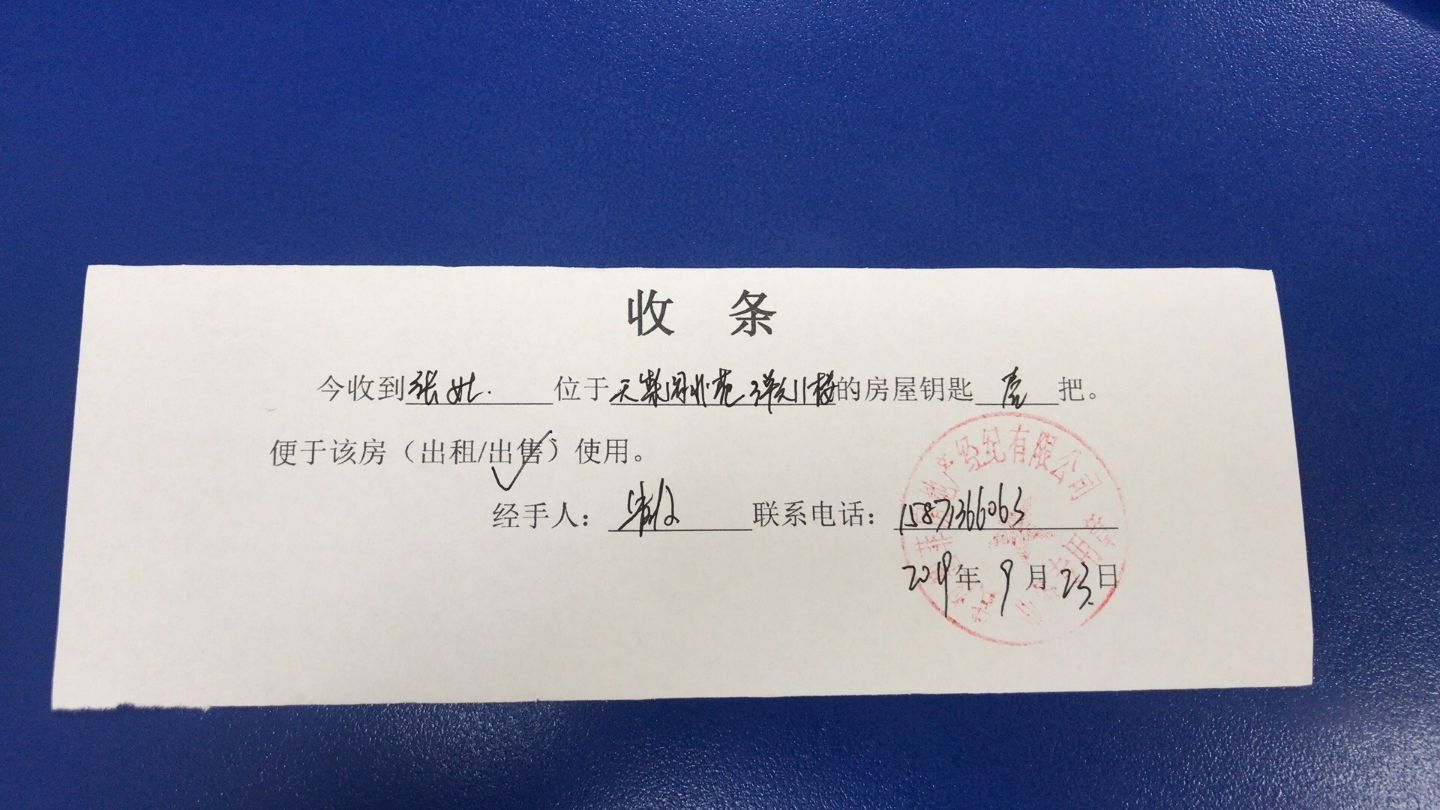 收 条
今收到张 位于天 的房屋钥匙壹把。
便于该房（出租/出售）使用。
经手人： 联系电话：15871366063
2019年9月23日
地产经纪有限公司